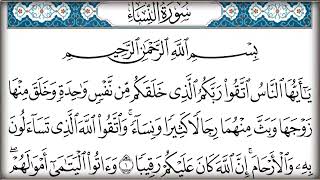 سُورَةُ النِّسَاءِ
بِسْمِ اللَّهِ الرَّحْمَٰنِ الرَّحِيمِ
يَٰٓأَيُّهَا النَّاسُ اتَّقُوا رَبَّكُمُ الَّذِى خَلَقَكُم مِّن نَّفْسٍ وَٰحِدَةٍ وَخَلَقَ مِنْهَا
زَوْجَهَا وَبَثَّ مِنْهُمَا رِجَالًا كَثِيرًا وَنِسَآءً ۚ وَاتَّقُوا اللَّهَ الَّذِى تَسَآءَلُونَ
بِهِۦ وَالْأَرْحَامَ ۚ إِنَّ اللَّهَ كَانَ عَلَيْكُمْ رَقِيبًا ١ وَءَاتُوا الْيَتَٰمَىٰٓ أَمْوَٰلَهُمْ ۖ